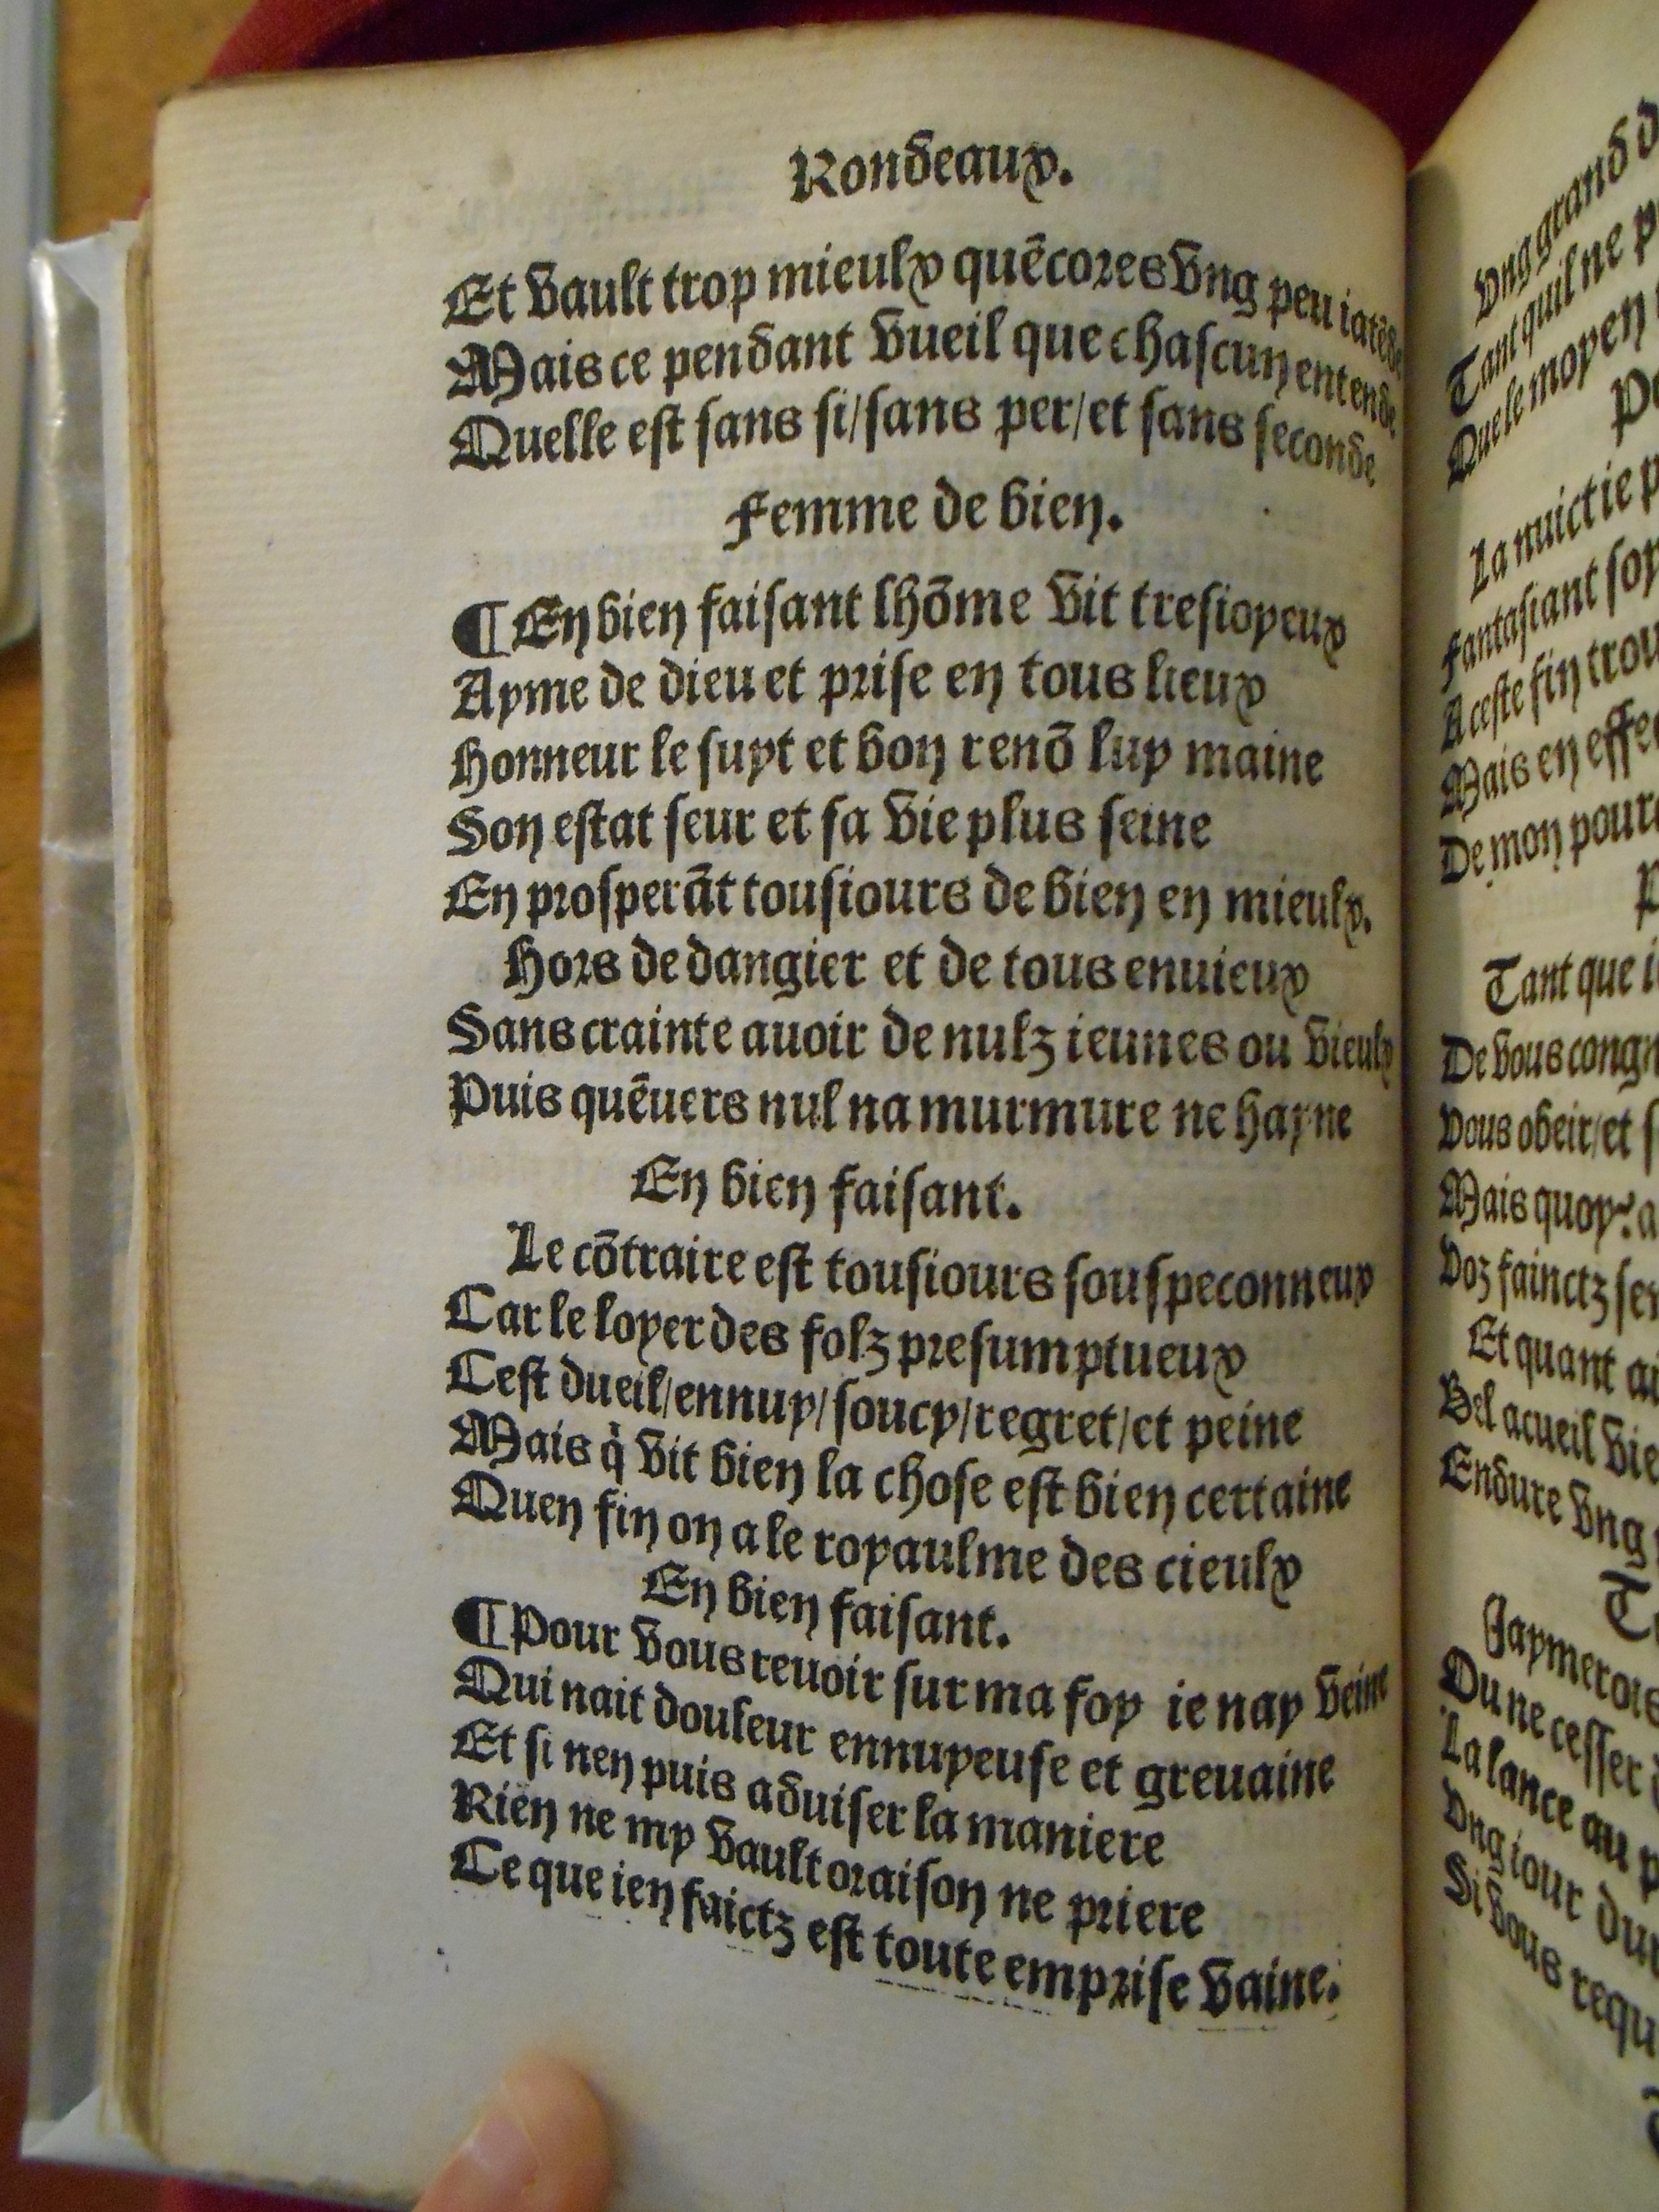 Rondeaux.
Et vault trop mieulx quēcores vng peu iatēde
Mais ce pendant vueil que chascun entende
Quelle est sans si/sans per/et sans seconde
Femme de bien.
¶ En bien faisant lhōme vit tresioyeux
Ayme de dieu et prise en tous lieux
Honneur le suyt et bon renō luy maine
Son estat seur et sa vie plus seine
En prosperāt tousiours de bien en mieulx.
Hors de dangier et de tous enuieux
Sans crainte auoir de nulz ieunes ou vieulx
Puis quēuers nul na murmure ne hayne
En bien faisant.
Le cōtraire est tousiours souspeconneux
Car le loyer des folz presumptueux
Cest dueil/ennuy/soucy/regret/et peine
Mais q̇ vit bien la chose est bien certaine
Quen fin on a le royaulme des cieulx
En bien faisant.
¶ Pour vous reuoir sur ma foy ie nay veine
Qui nait douleur ennuyeuse et greuaine
Et si nen puis aduiser la maniere
Rien ne my vault oraison ne priere
Ce que ien faictz est toute emprise vaine.
Vng grand
Tant quil ne
Que le moyen
La nuict ie
Fantasiant
A ceste fin
Mais en
De mon
Tant que
De vous
Vous obeir/et
Mais quoy? a
Voz fainctz
Et quant
Bel acueil
Endure vng
Iaymerois
Ou ne cesser
La lance au
Vng iour
Si vous